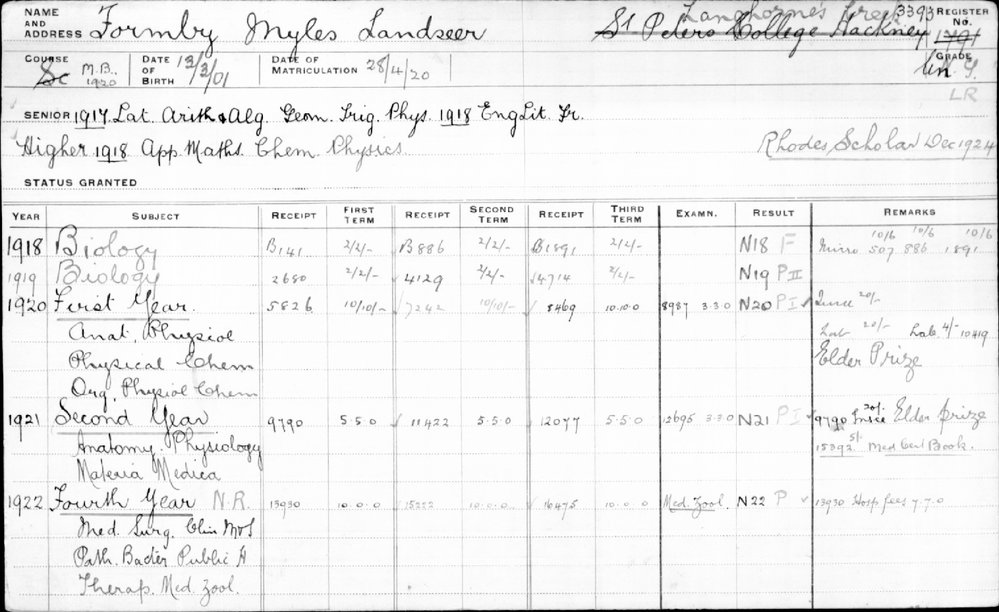 NAME AND ADDRESS Formby Myles Landseer St Peters College Hackney Langhornes Creek 3393 REGISTER No. 1791
COURSE Sc M.B., 1920 DATE OF BIRTH 13/3/01 DATE OF MATRICULATION 28/4/20 GRADE Un
LR
SENIOR 1917 Lat. Arith & Alg. Geom. Trig. Phys. 1918 Eng Lit. Fr.
Higher 1918 App Maths. Chem. Physics
Rhodes Scholar Dec 1924
STATUS GRANTED
YEAR SUBJECT RECEIPT FIRST TERM RECEIPT SECOND TERM RECEIPT THIRD TERM EXAMN. RESULT REMARKS
1918 Biology B141 2/2/- B886 2/2/- B1891 2/2/- N18 F Micro 10/6 507 10/6 886 10/6 1891
1919 Biology 2680 2/2/- 4129 2/2/- 4714 2/2/- N19 P II
1920 First Year. 5826 10/10/- 7242 10/10/- 8469 10.10.0 8987 3.3.0 N20 P I 20/-
Anat, Physiol 20/- Lab. 4/- 10419
Physical Chem Elder Prize
Org, Physiol Chem
1921 Second Year 9790 5.5.0 11422 5.5.0 12077 5.5.0 12695 3.3.0 N21 P I 9790 20/- Elder prize
Anatomy. Physiology 15392 5/- Med Cert Book.
Materia Medica
1922 Fourth Year N.R. 13930 10.0.0 15222 10.0.0 16475 10.0.0 Med. Zool. N22 P 13930 Hosp fees 7.7.0
Med. Surg. Clin M & S
Path. Bacter Public H
Therap. Med. Zool.